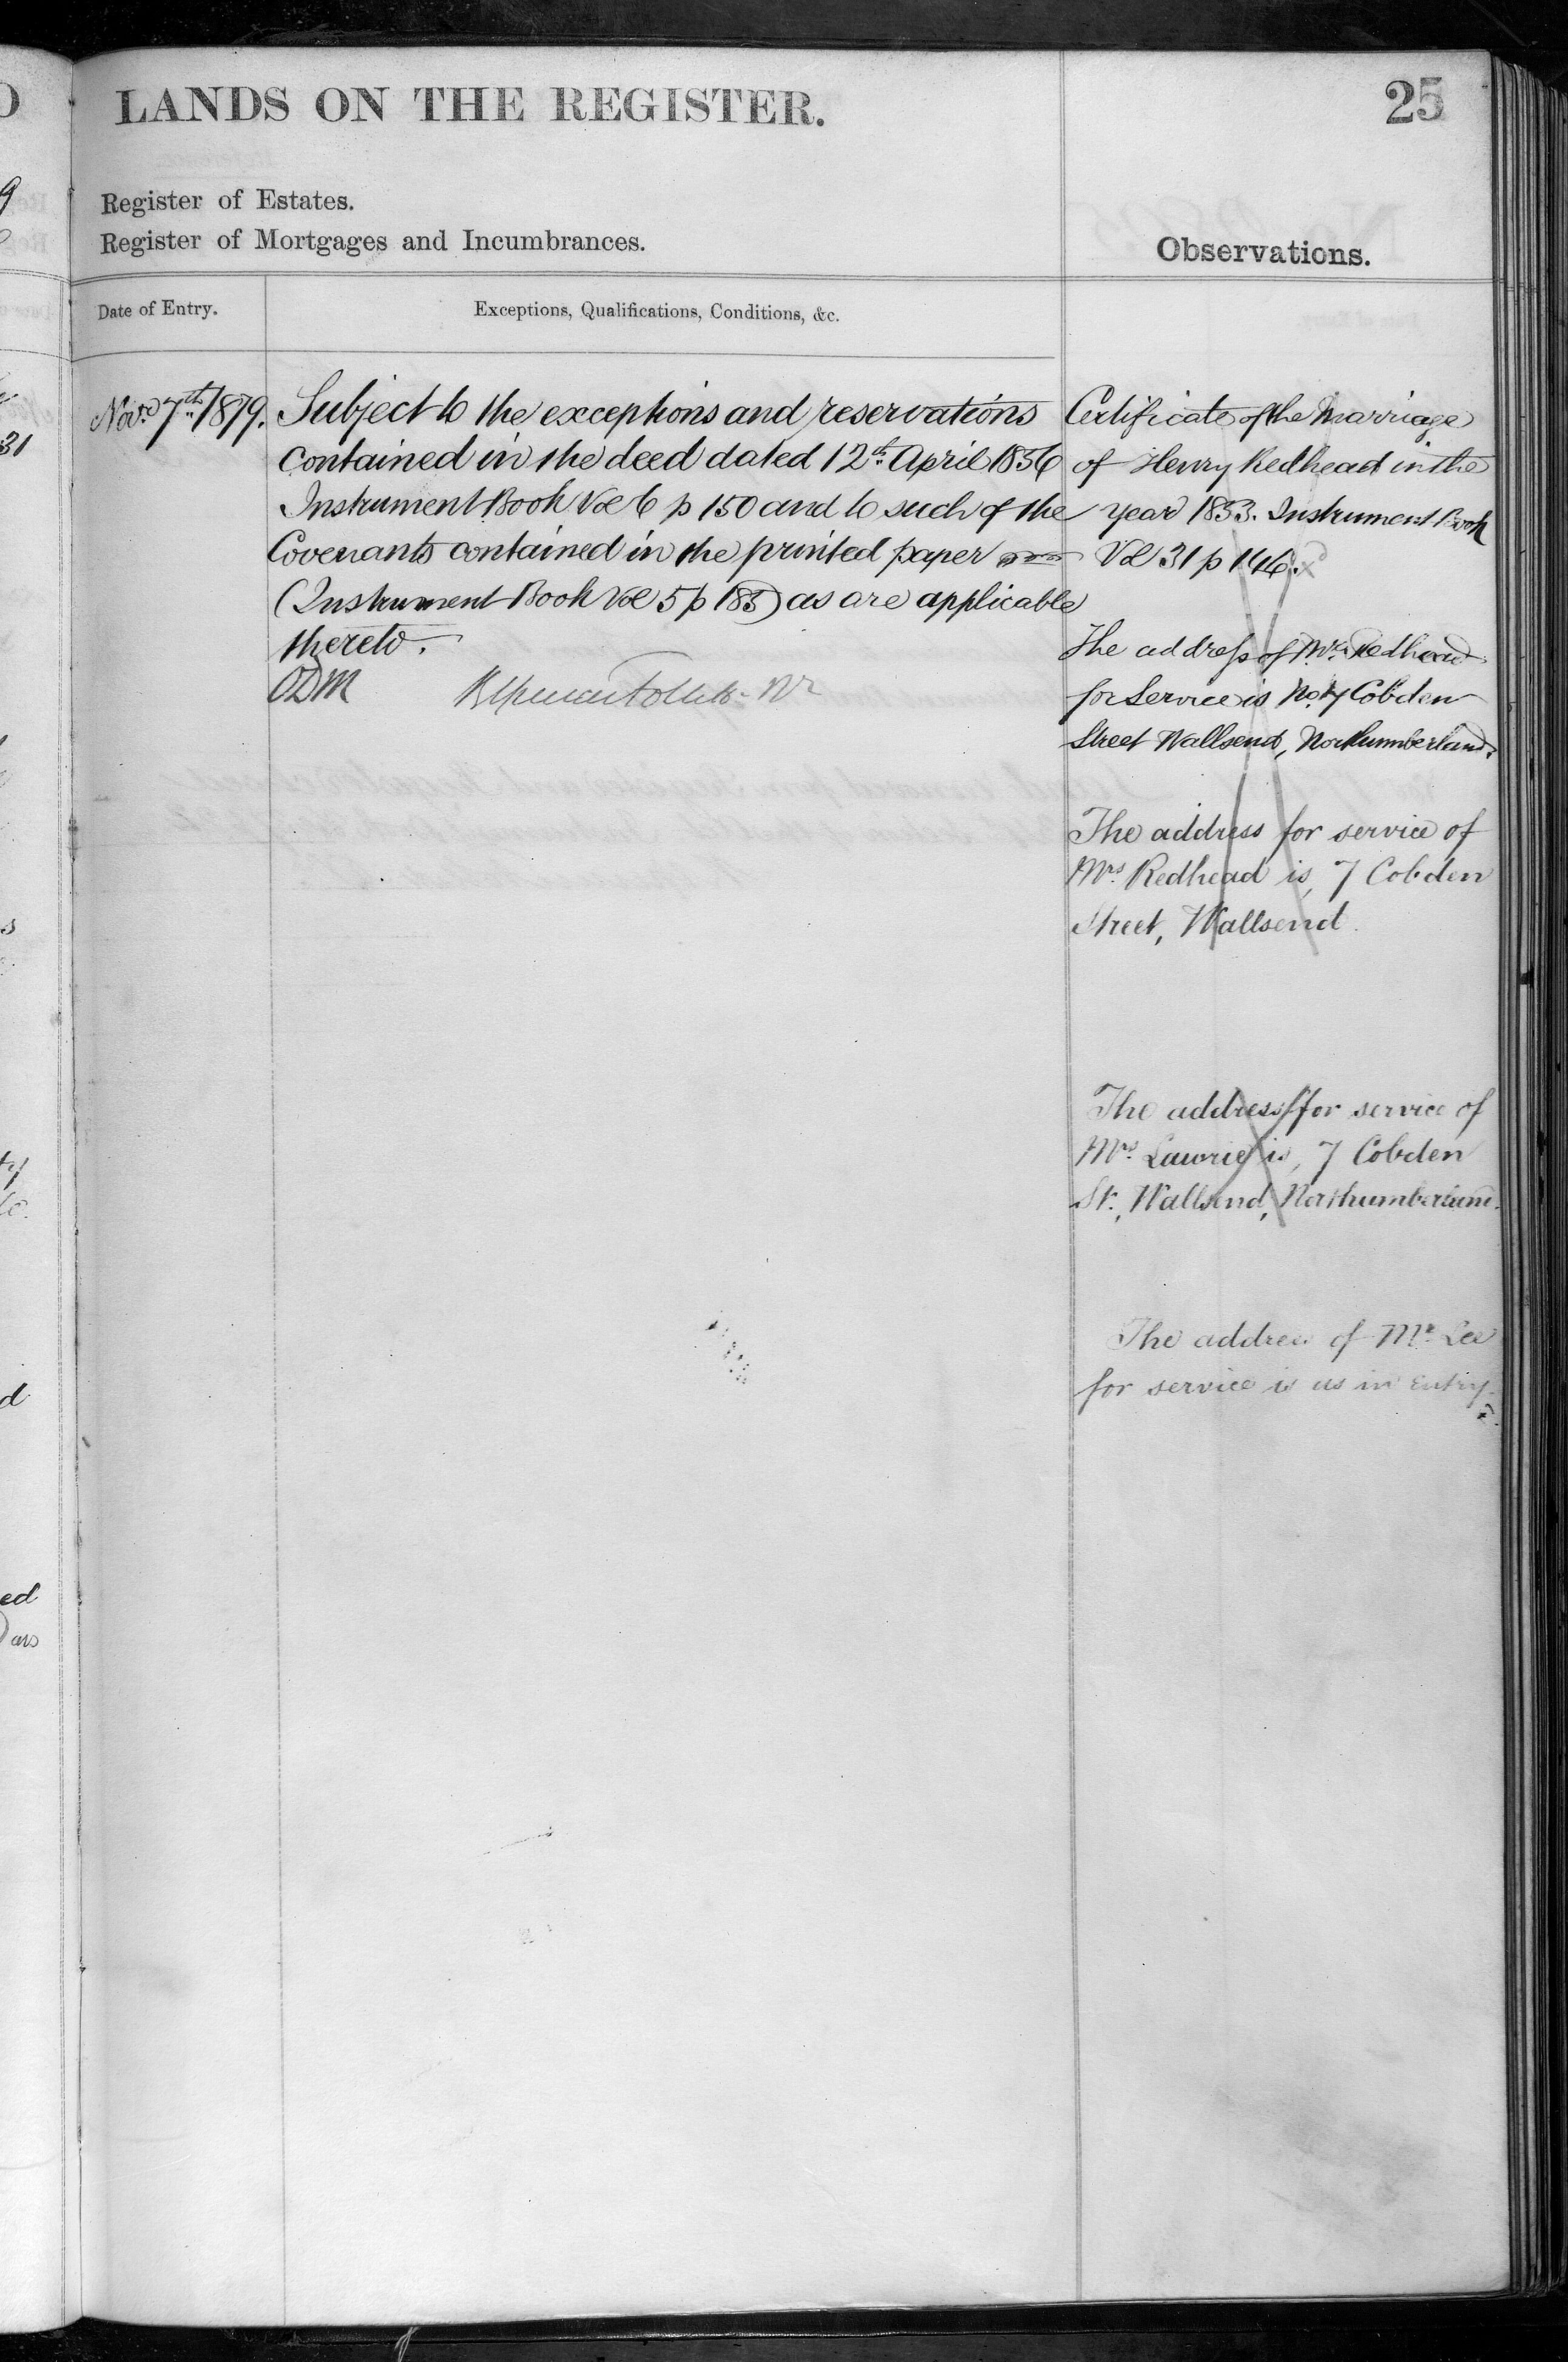 LANDS ON THE REGISTER.
25
Register of Estates.
Register of Mortgages and Incumbrances.
Observations.
Date of Entry.
Exceptions, Qualifications, Conditions, &c.
Novr 7th 1879.
Subject to the exceptions and reservations
contained in the deed dated 12th April 1856
Instrument Book Vol 6 p 150 and to such of the
Covenants contained in the printed paper
(Instrument Book Vol 5 p 185) as are applicable
thereto.
ODM
Certificate of the Marriage
of Henry Redhead in the
year 1853. Instrument Book
Vol 31 p 146.
The address of Mrs Redhead
for Service is No 7 Cobden
Street Wallsend, Northumberland.
The address for service of
Mrs Redhead is, 7 Cobden
Street, Wallsend.
The address for service of
Mrs Lawrie is, 7 Cobden
St., Wallsend, Northumberland.
The address of Mr Lee
for service is as in Entry
31
s
d
ed
ars